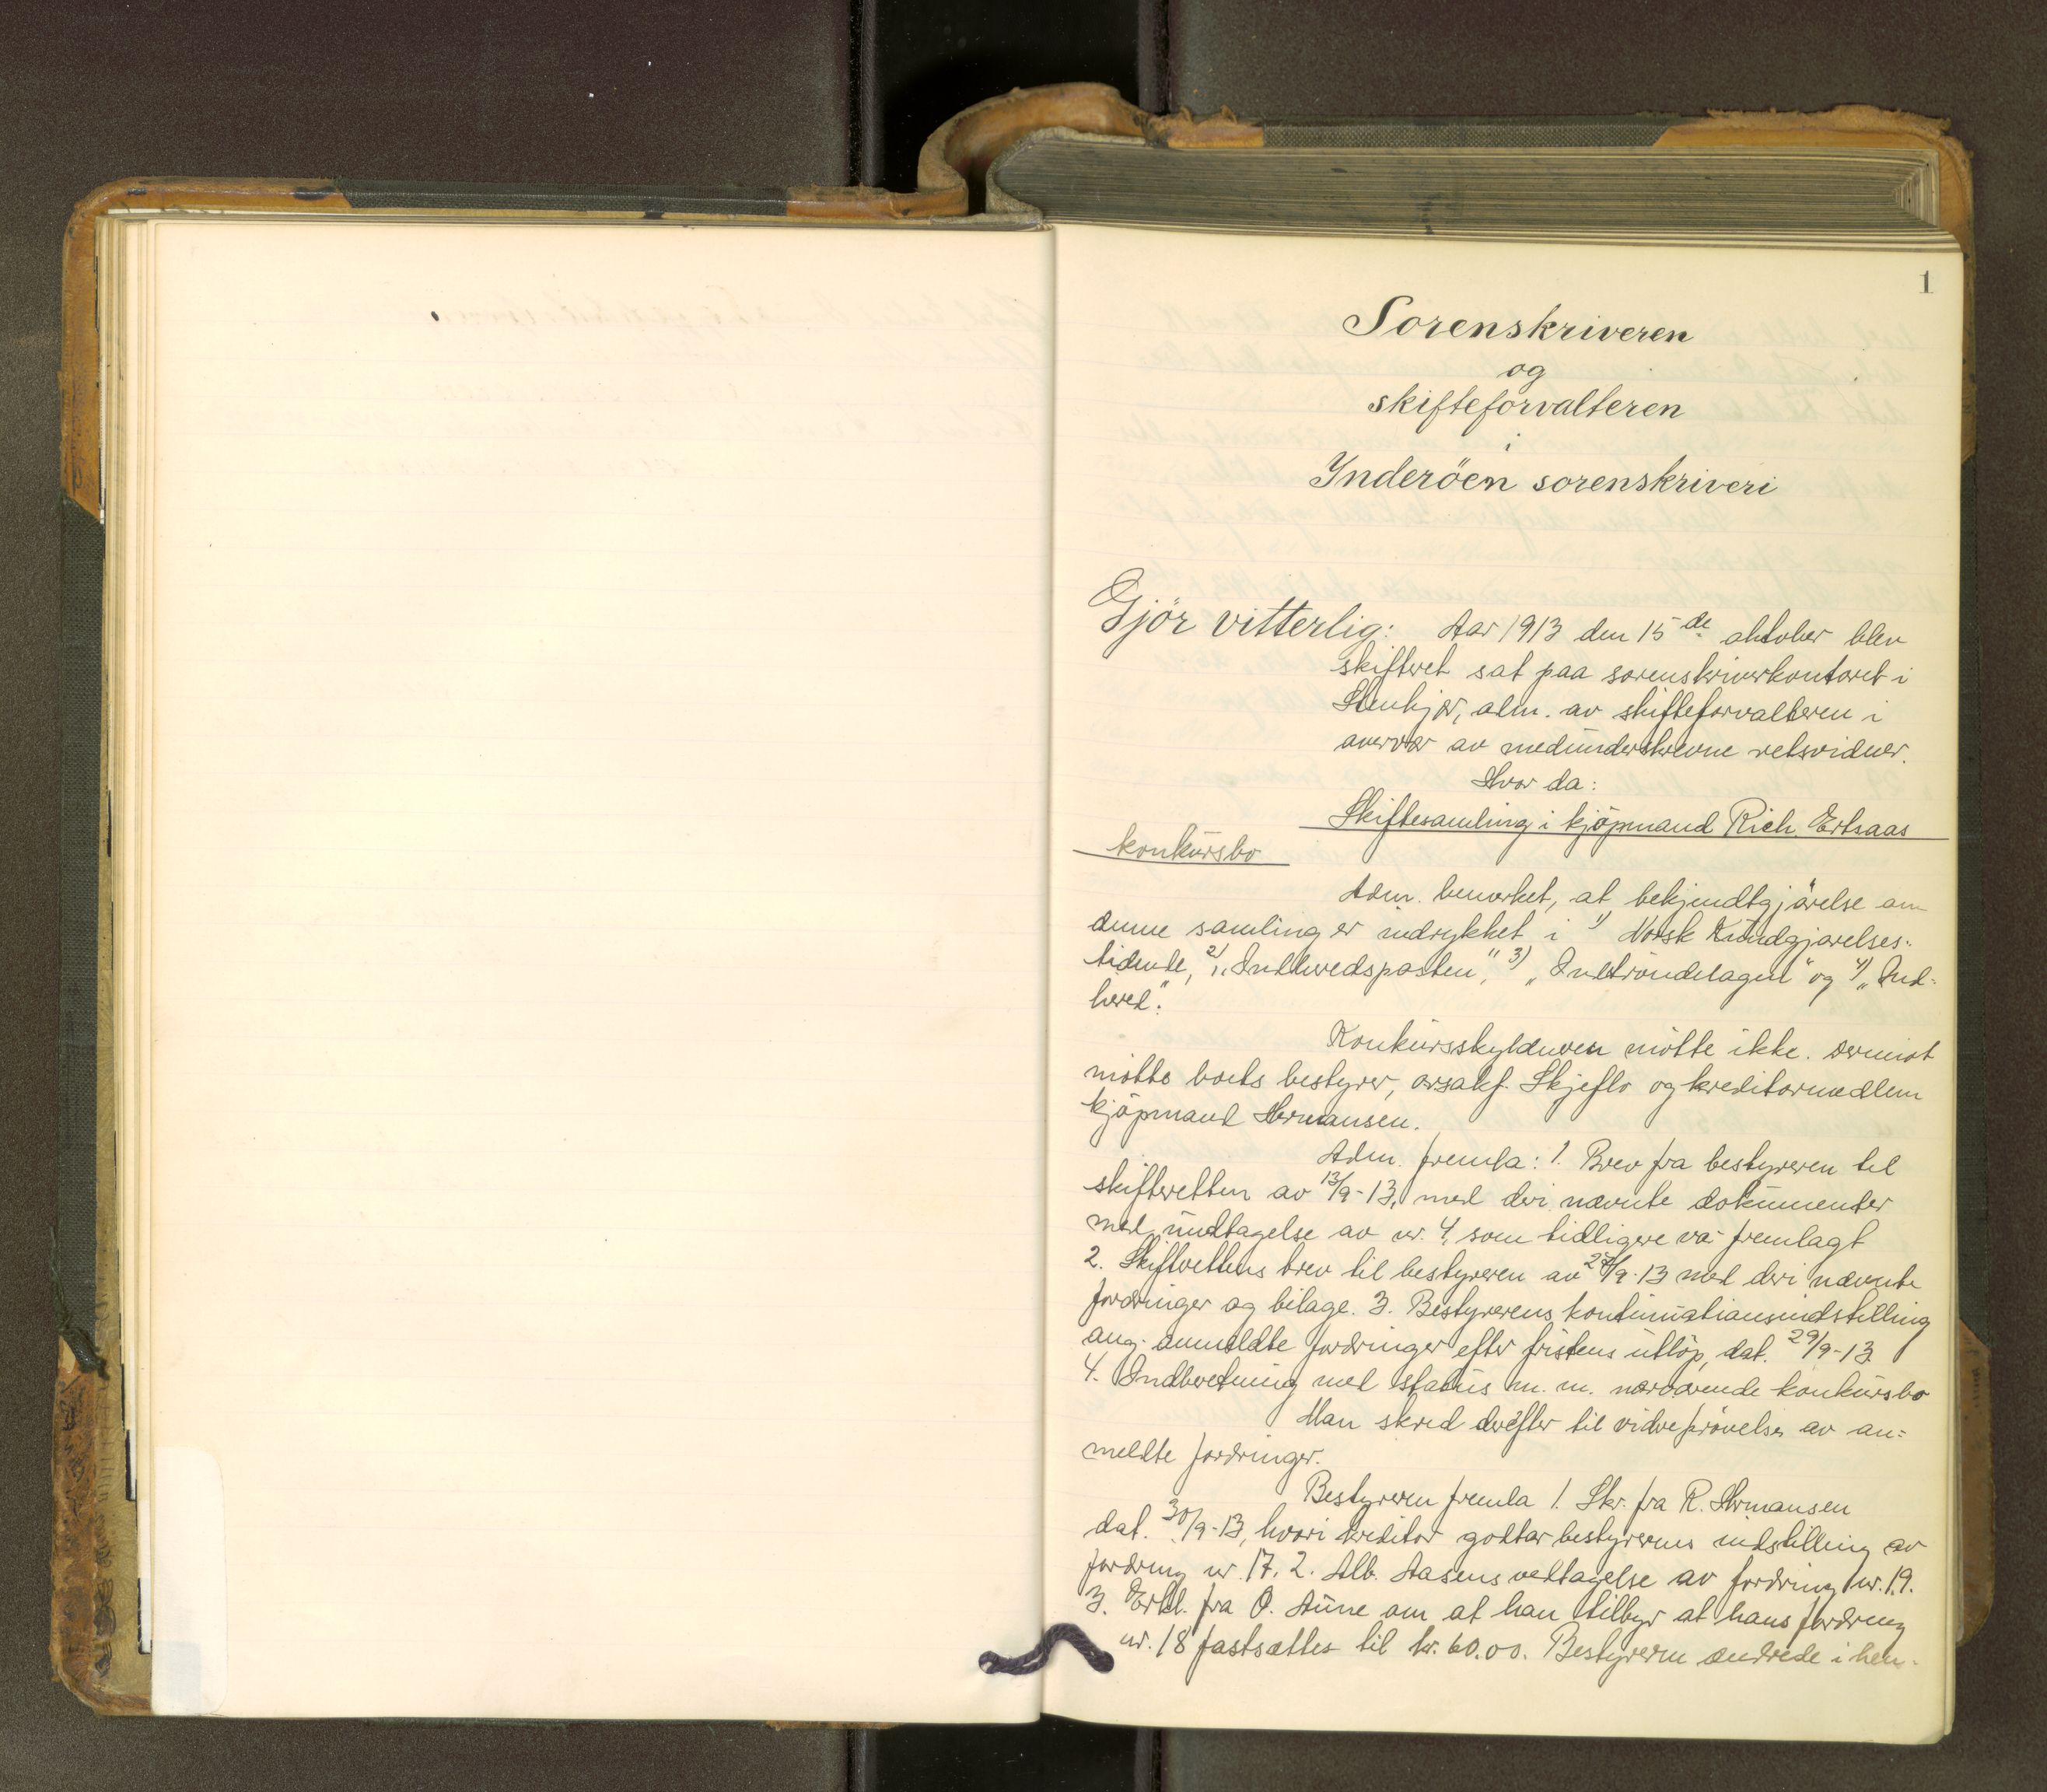 1
Sorenskriveren
og
skifteforvalteren
i
Ynderöen sorenskriveri
Gjör vitterlig: Aar 1913 den 15de oktober blev
skifteret sat paa sorenskriverkontoret i
Stenkjær, adm. av skifteforvalteren i
overvær av medunderskrevne retsvidner.
Hvor da:
Skiftesamling i kjöpmand Rich. Ertsaas
konkursbo
Adm. bemerket, at bekjendtgjörelse om
denne samling er indrykket i 1) Norsk Kundgjörelses-
tidende, 2) „Indherredsposten", 3) „Indtröndelagen" og 4) „Ind-
hered".
Konkursskyldneren mötte ikke. Derimot
mötte boets bestyrer, orsakf. Skjeflo og kreditormedlem
kjöpmand Hermansen.
Adm. fremla: 1. Brev fra bestyreren til
skifteretten av 13/9-13, med deri nævnte dokumenter
med undtagelse av nr. 4, som tidligere var fremlagt
2. Skifterettens brev til bestyreren av 24/9-13 med deri nævnte
fordringer og bilage. 3. Bestyrerens kontinuationsindstilling
ang. anmeldte fordringer efter fristens utlöp, dat. 29/9-13.
4. Indberetning med status m. m. nærværende konkursbo
Man skred derefter til videre prövelse av an=
meldte fordringer.
Bestyreren fremla 1. Skr. fra R. Hermansen
dat. 30/9-13, hvori kreditor godtar bestyrerens indstilling av
fordring nr. 17. 2. Alb. Aasens vedtagelse av fordring nr. 19.
3. Erkl. fra O. Aune om at han tilbyr at hans fordring
nr. 18 fastsættes til kr. 60.00. Bestyreren ændrede i hen-